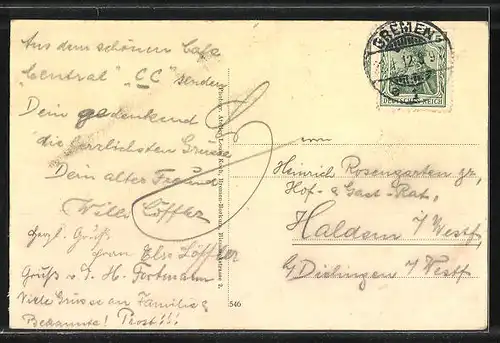 Aus dem schönen Cafe
Central "CC" senden
Dein gedenkend
die herzlichsten Grüsse
Dein alter Freund
Willi Löffler
Herzl. Gruß
Frau Else Löffler
Gruß v. F. H. Fortmann
Viele Grüsse an Familie &
Bekannte! Prost!!!
546
BREMEN
DEUTSCHES REICH
Heinrich Rosengarten gr,
Hof- & Gast-Rat,
Haldem i/Westf,
b/ Dielingen i/Westf